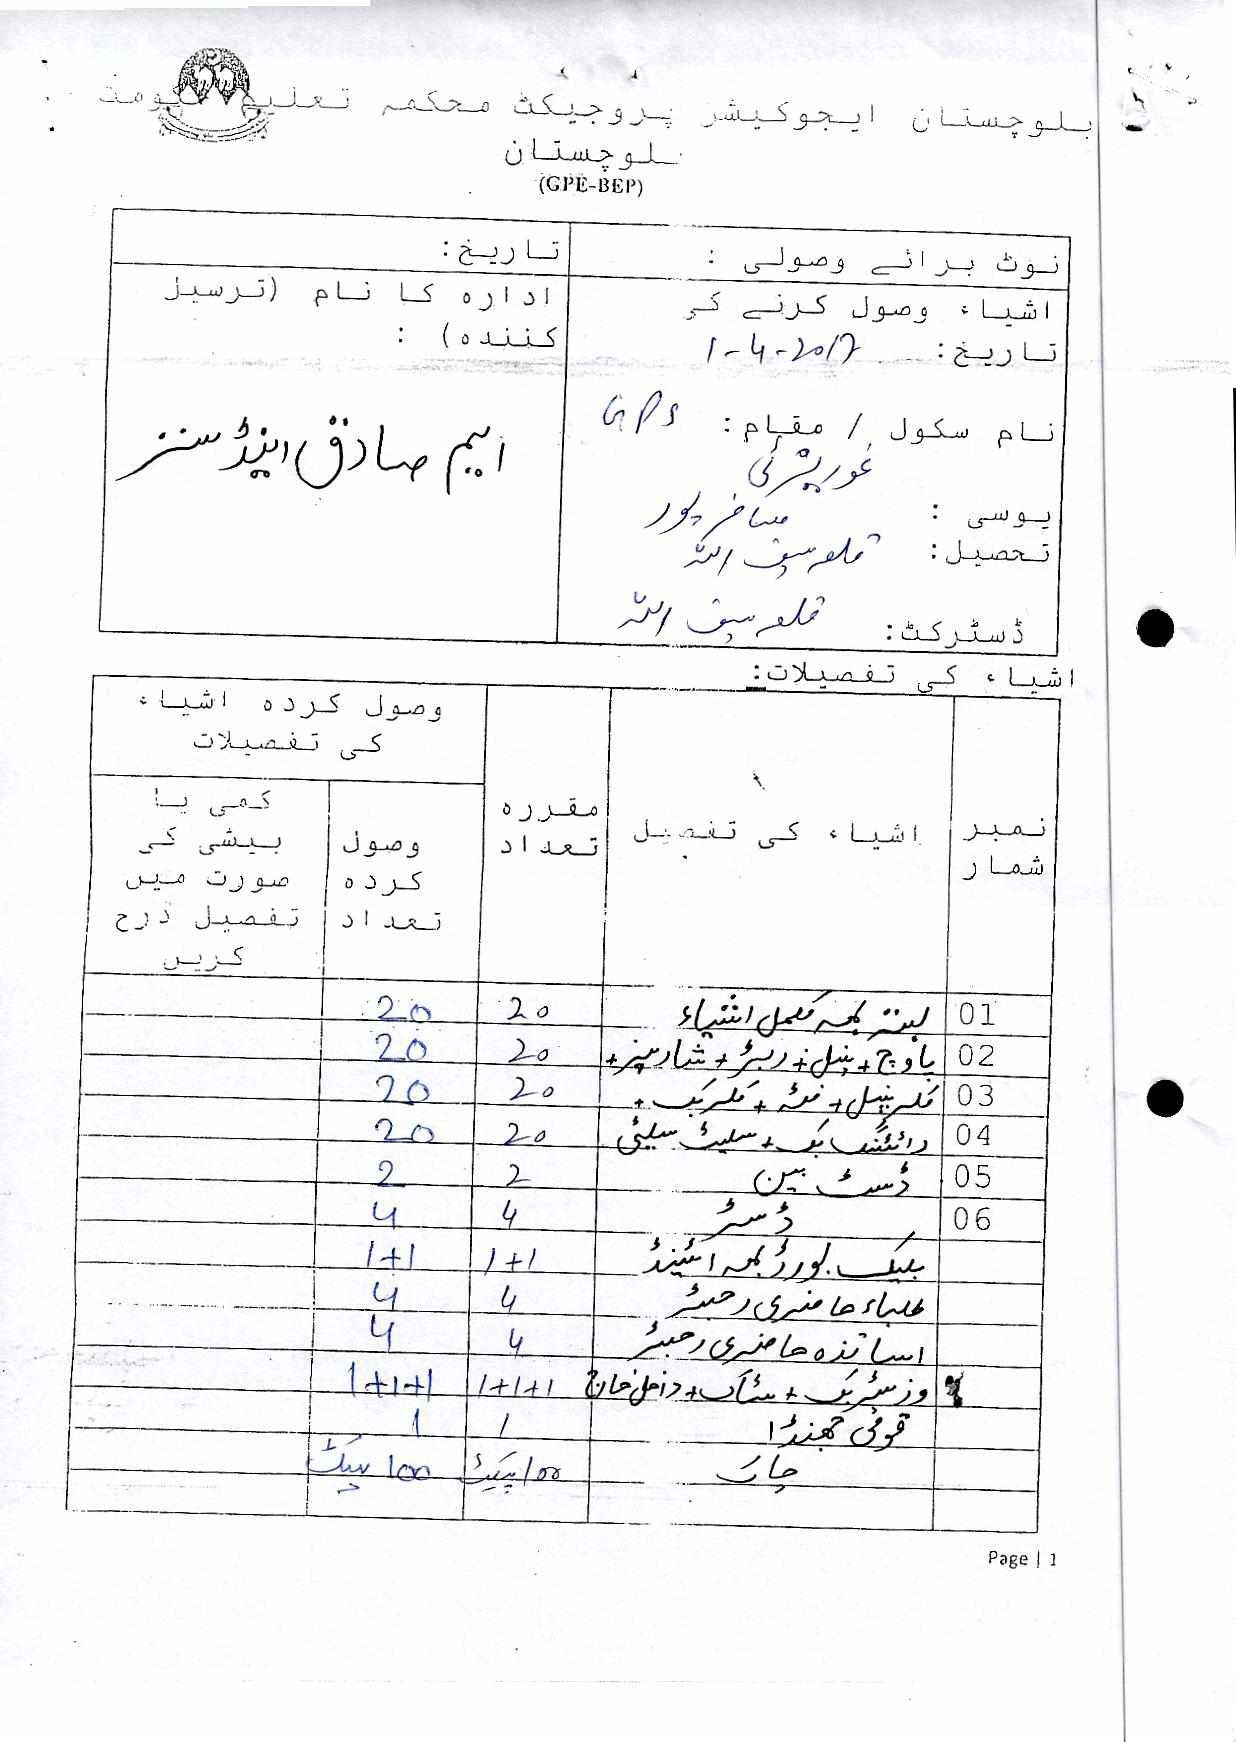 بلوچستان ایجوکیشر پروجیکٹ محکمہ تعلیم حکومت
بلوچستان
(GPE-BEP)
نوٹ برائے وصولی :
تاریخ:
اشیاء وصول کرنے کی
تاریخ: 1-4-2017
نام سکول / مقام: GPS
یوسی : مسافر پور
تحصیل: قلعہ سیف اللہ
ڈسٹرکٹ: قلعہ سیف اللہ
ادارہ کا نام (ترسیل
کنندہ) :
ایم صادق اینڈ سنز
اشیاء کی تفصیلات:
نمبر شمار
اشیاء کی تفصیل
مقررہ تعداد
وصول کردہ اشیاء
کی تفصیلات
وصول کردہ تعداد
کمی یا
بیشی کی
صورت میں
تفصیل درج
کریں
01 بستہ بمعہ مکمل اشیاء 20 20
02 + پنسل + ربڑ + شارپنر + 20 20
03 کلر پنسل + فٹہ + کلر بک + 20 20
04 رائٹنگ بک + سلیٹ سلیٹی 20 20
05 ڈسٹ بین 2 2
06 ڈسٹر 4 4
بلیک بورڈ بمعہ اسٹینڈ 1+1 1+1
طلباء حاضری رجسٹر 4 4
اساتذہ حاضری رجسٹر 4 4
وزیٹر بک + سٹاک + داخل خارج 1+1+1 1+1+1
قومی جھنڈا 1 1
چاک 100 پیکٹ 100 پیکٹ
Page | 1